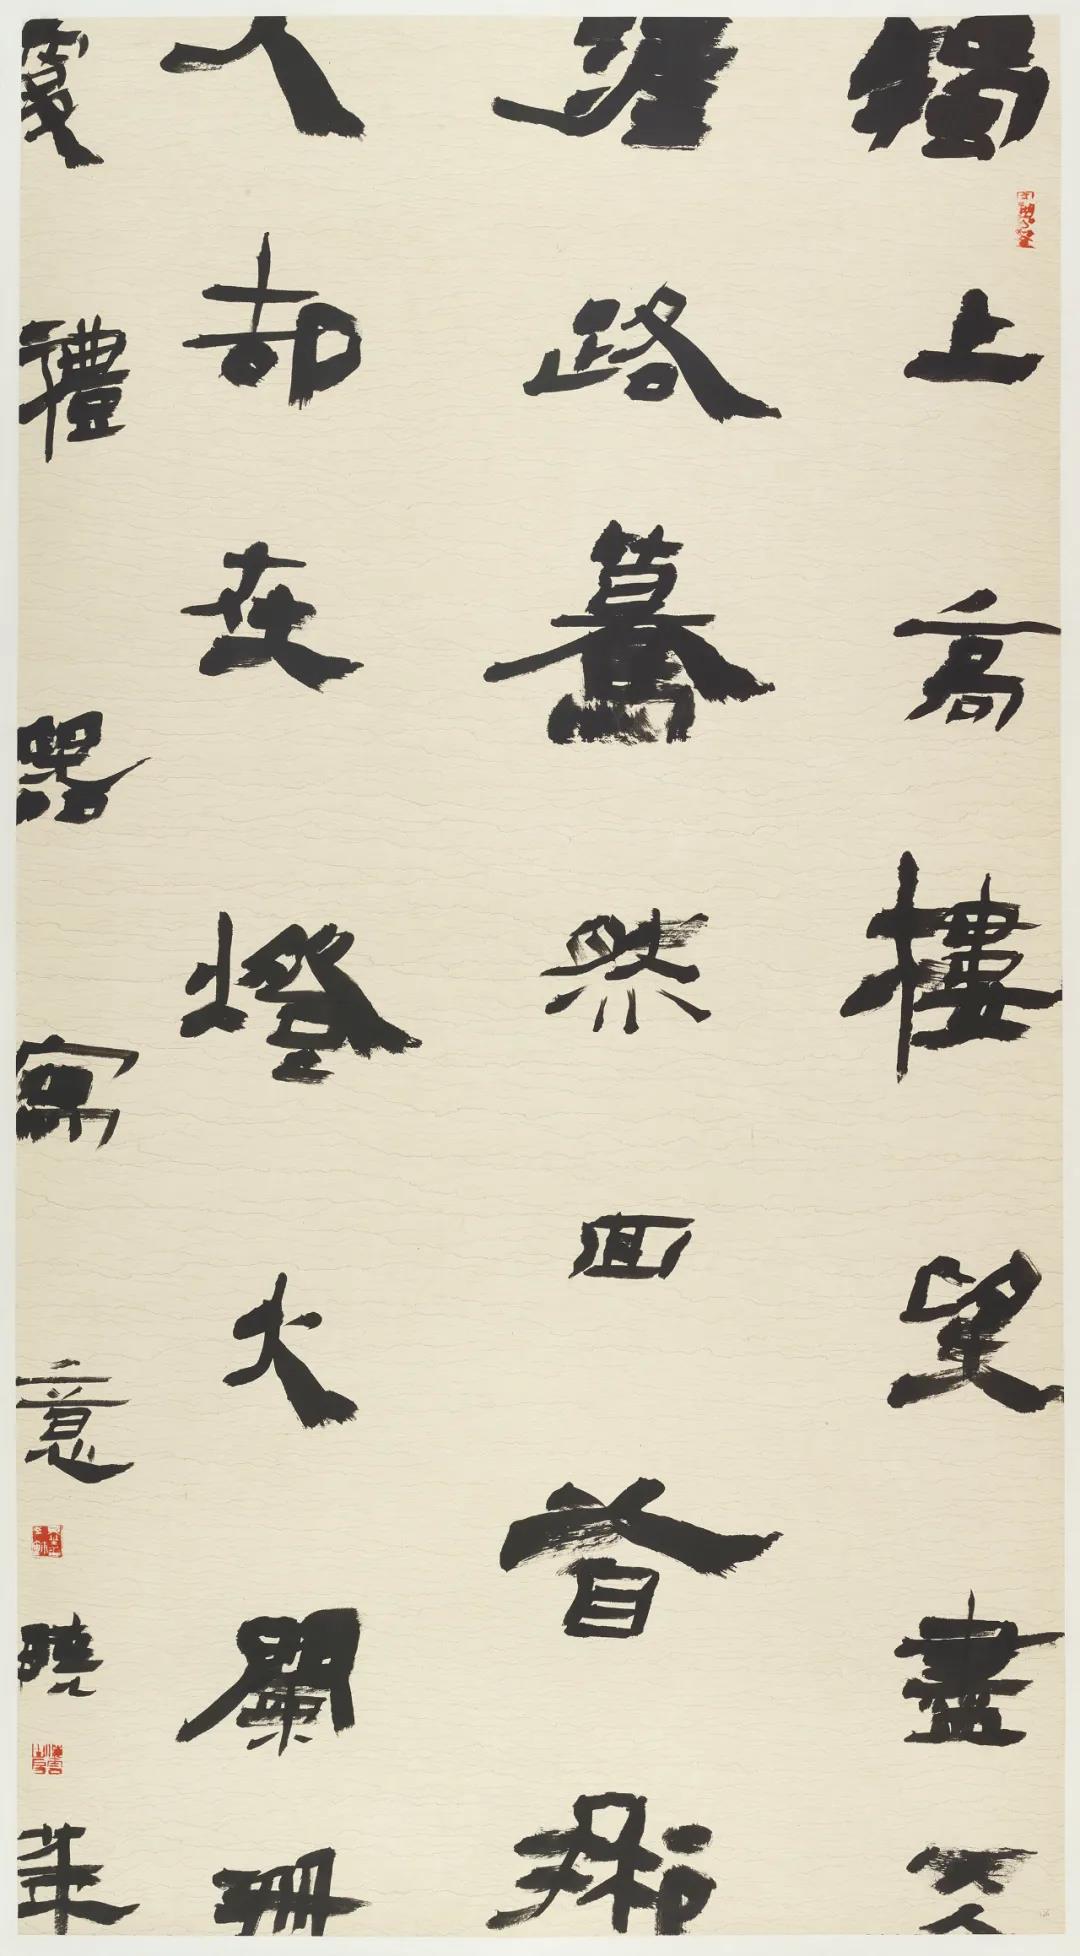 獨上高樓望盡天
涯路驀然回首那
人却在燈火闌珊
處禮器寫意曉